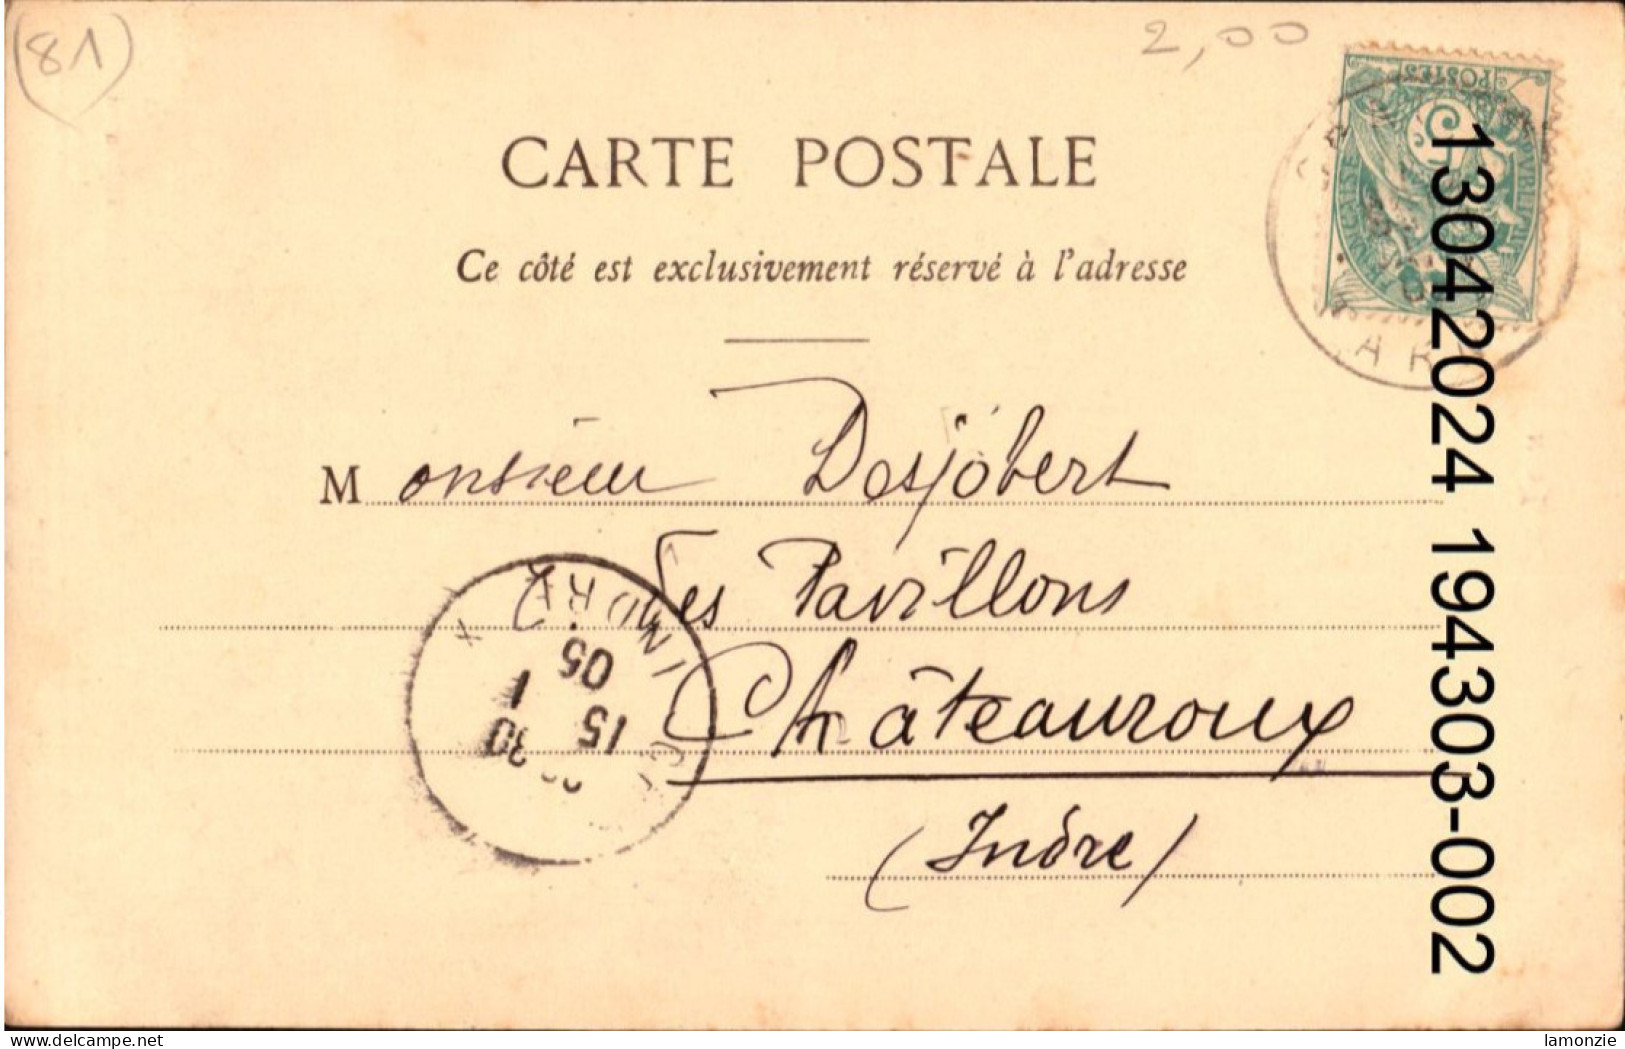 (81)
2,00
POSTES
CARTE POSTALE
Ce côté est exclusivement réservé à l'adresse
Monsieur Desjobert
Les Pavillons
Châteauroux
(Indre)
INDRE
15 1
05
30
13042024 194303-002
delcampe.net
lamonzie